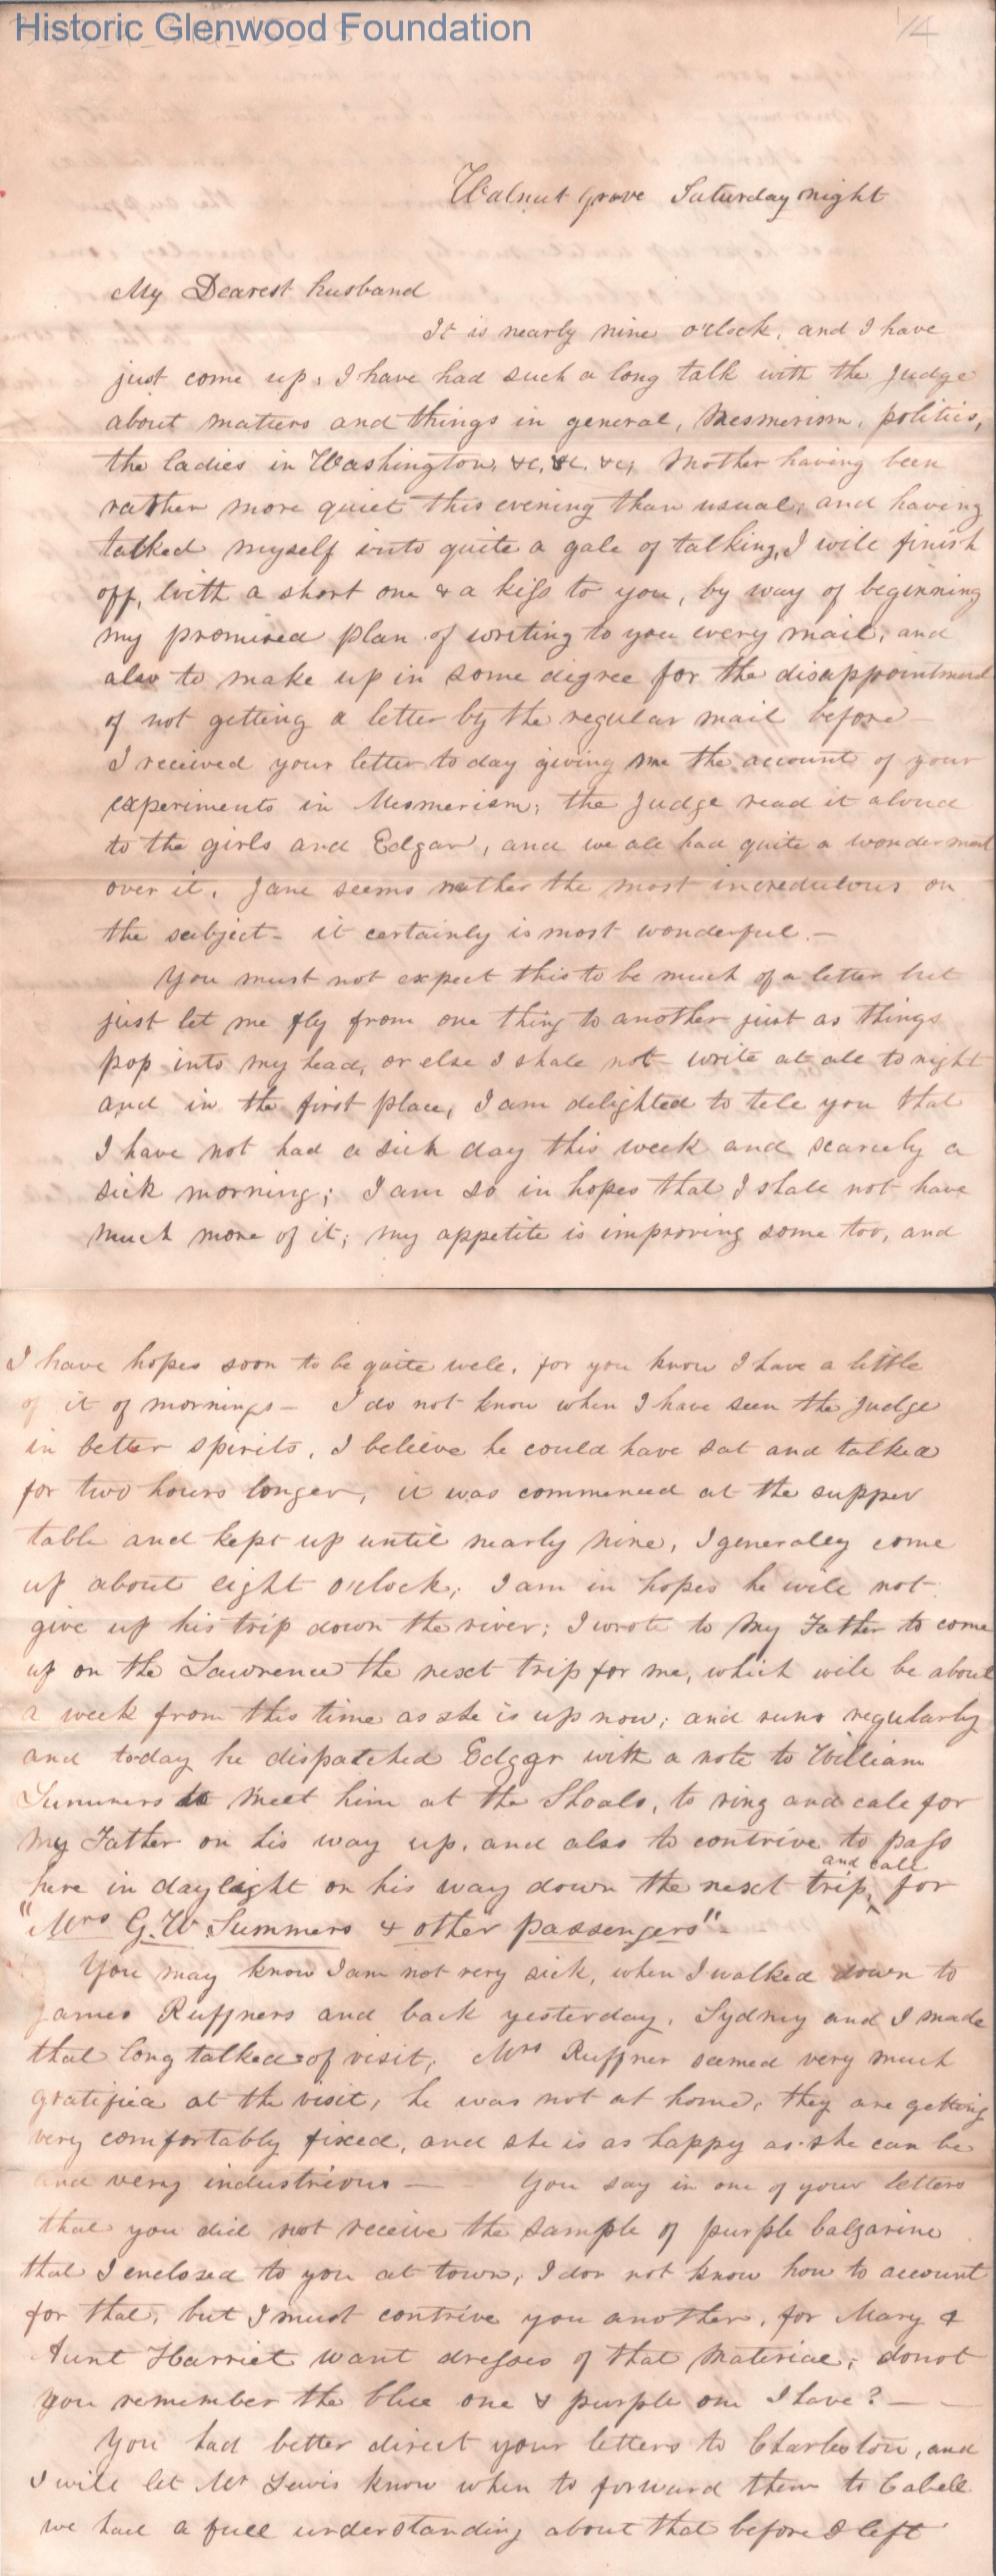 Historic Glenwood Foundation
1/4
Walnut Grove Saturday night
My Dearest husband
It is nearly nine o'clock, and I have
just come up, I have had such a long talk with the Judge
about matters and things in general, Mesmerism, politics,
the ladies in Washington, &c, &c. &c, Mother having been
rather more quiet this evening than usual; and having
talked myself into quite a gale of talking, I will finish
off, with a short one & a kiss to you, by way of beginning
my promised plan of writing to you every mail, and
also to make up in some degree for the disappointment
of not getting a letter by the regular mail before
I received your letter to day giving me the account of your
experiments in Mesmerism; the Judge read it aloud
to the girls and Edgar, and we all had quite a wonderment
over it. Jane seems rather the most incredulous on
the subject - it certainly is most wonderful. -
You must not expect this to be much of a letter but
just let me fly from one thing to another just as things
pop into my head, or else I shall not write at all to night
and in the first place, I am delighted to tell you that
I have not had a sick day this week and scarcely a
sick morning; I am so in hopes that I shall not have
much more of it; my appetite is improving some too, and
I have hopes soon to be quite well, for you know I have a little
of it of mornings - I do not know when I have seen the Judge
in better spirits, I believe he could have sat and talked
for two hours longer, it was commenced at the supper
table and kept up until nearly nine, I generaley come
up about eight o'clock; I am in hopes he will not
give up his trip down the river; I wrote to my Father to come
up on the Lawrence the next trip for me, which will be about
a week from this time as she is up now; and runs regularly
and today he dispatched Edgar with a note to William
Summers to meet him at the Shoals, to ring and call for
my Father on his way up, and also to contrive to pass
here in daylight on his way down the next trip, and call for
"Mrs G. W Summers & other passengers" -
You may know I am not very sick, when I walked down to
James Ruffners and back yesterday. Sydney and I made
that long talked of visit; Mrs Ruffner seemed very much
gratified at the visit, he was not at home, they are getting
very comfortably fixed, and she is as happy as she can be
and very industrious — You say in one of your letters
that you did not receive the sample of purple balzarine
that I enclosed to you at town, I dor not know how to account
for that, but I must contrive you another, for Mary &
Aunt Harriet want dresses of that material; donot
you remember the blue one & purple one I have? — —
You had better direct your letters to Charleston, and
I will let Mr Lewis know when to forward them to Cabell
we had a full understanding about that before I left